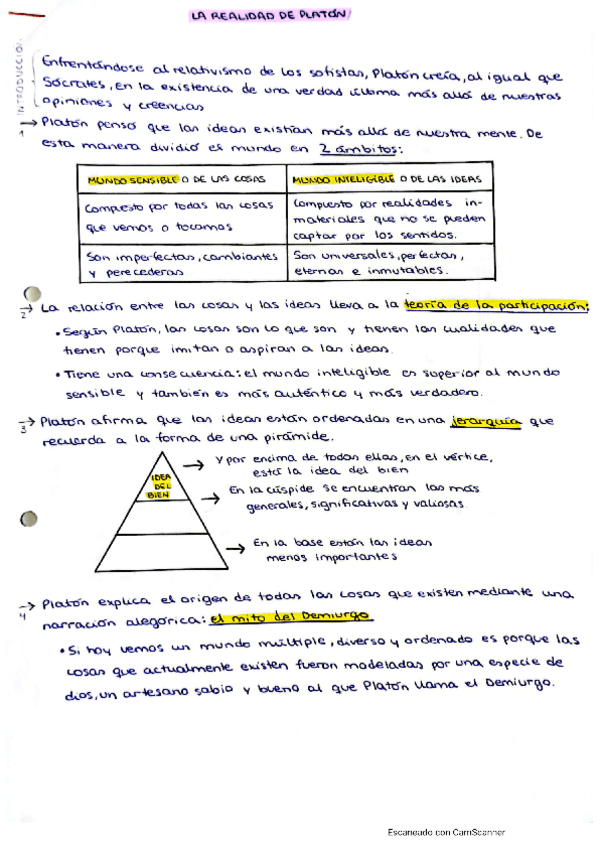 LA REALIDAD DE PLATÓN
INTRODUCCIÓN
Enfrentándose al relativismo de los sofistas, Platón creía, al igual que
Sócrates, en la existencia de una verdad última más allá de nuestras
opiniones y creencias
→ Platón pensó que las ideas existían más allá de nuestra mente. De
1
esta manera dividió es mundo en 2 ámbitos:
MUNDO SENSIBLE O DE LAS COSAS
MUNDO INTELIGIBLE O DE LAS IDEAS
Compuesto por todas las cosas
que vemos o tocamos
Compuesto por realidades in-
materiales que no se pueden
captar por los sentidos.
Son imperfectas, cambiantes
y perecederas
Son universales, perfectas,
eternas e inmutables.
→ La relación entre las cosas y las ideas lleva a la teoría de la participación:
2
• Según Platón, las cosas son lo que son y tienen las cualidades que
tienen porque imitan o aspiran a las ideas.
• Tiene una consecuencia: el mundo inteligible es superior al mundo
sensible y también es más auténtico y más verdadero.
→ Platón afirma que las ideas están ordenadas en una jerarquía que
3
recuerda a la forma de una pirámide.
IDEA
DEL
BIEN
→ Y por encima de todas ellas, en el vértice,
está la idea del bien
→ En la cúspide se encuentran las más
generales, significativas y valiosas
→ En la base están las ideas
menos importantes
→ Platón explica el origen de todas las cosas que existen mediante una
4
narración alegórica: el mito del Demiurgo
• Si hoy vemos un mundo múltiple, diverso y ordenado es porque las
cosas que actualmente existen fueron modeladas por una especie de
dios, un artesano sabio y bueno al que Platón llama el Demiurgo.
Escaneado con CamScanner